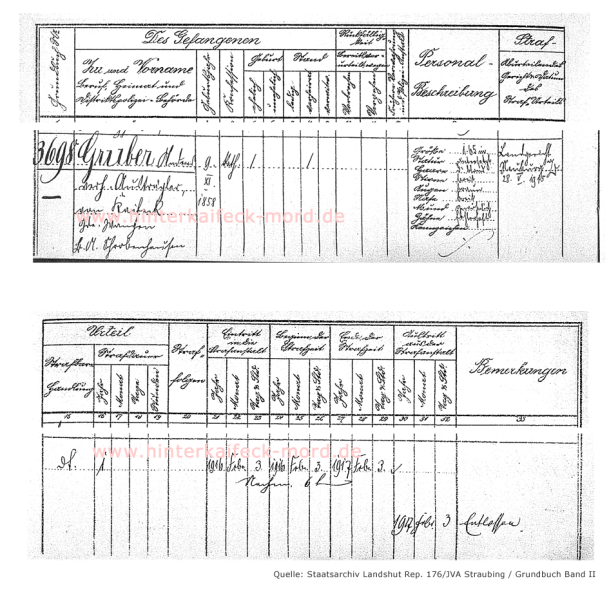 Grundbuch No
Des Gefangenen
Rückfällig-
keit
Personal-
Beschreibung
Straf-
Zu und Vorname
Beruf, Heimat und
Distriktspolizei-Behörde
Geburtsjahr
Konfession
Geburt
ehelich
unehelich
Stand
ledig
verheirat.
verwitw.
Verbrechen
Vergehen
3698
Gruber Andreas
verh. Austrägler,
von Kaifeck
Gde. Wangen
B.A. Schrobenhausen
9.
XI.
1858
kath.
1
1
Größe
Statur
Haare
Stirne
Augen
Nase
Mund
Zähne
Kennzeichen
Landgericht
Neuburg
28. V. 1915
www.hinterkaifeck-mord.de
Urteil
Strafbare
Handlung
Strafdauer
Jahr
Monat
Tage
Stunden
Straf-
folgen
Eintritt
in die
Strafanstalt
Jahr
Monat
Tag u. Std.
Beginn der
Strafzeit
Jahr
Monat
Tag u. Std.
Ende der
Strafzeit
Jahr
Monat
Tag u. Std.
Austritt
aus der
Strafanstalt
Jahr
Monat
Tag u. Std.
Bemerkungen
15 16 17 18 19 20 21 22 23 24 25 26 27 28 29 30 31 32 33
www.hinterkaifeck-mord.de
1 1916 Febr. 3. 1916 Febr. 3. 1917 Febr. 3.
Nachm. 6 h
1917 Febr. 3 Entlassen
Quelle: Staatsarchiv Landshut Rep. 176/JVA Straubing / Grundbuch Band II